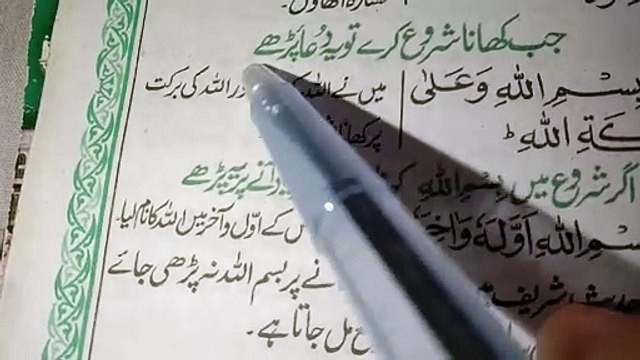 جب کھانا شروع کرے تو یہ دُعا پڑھے
بِسْمِ اللهِ وَعَلٰى
میں نے اللہ کے
ور اللہ کی برکت
كَةِ اللهِ ط
پر کھانا
اگر شروع میں بِسْمِ اللهِ
آنے پر یہ پڑھے
سْمِ اللهِ اَوَّلَهٗ وَاٰخِرَ
کے اوّل و آخر میں اللہ کا نام لیا۔
شریف
نے پر بسم اللہ نہ پڑھی جائے
مل جاتا ہے۔